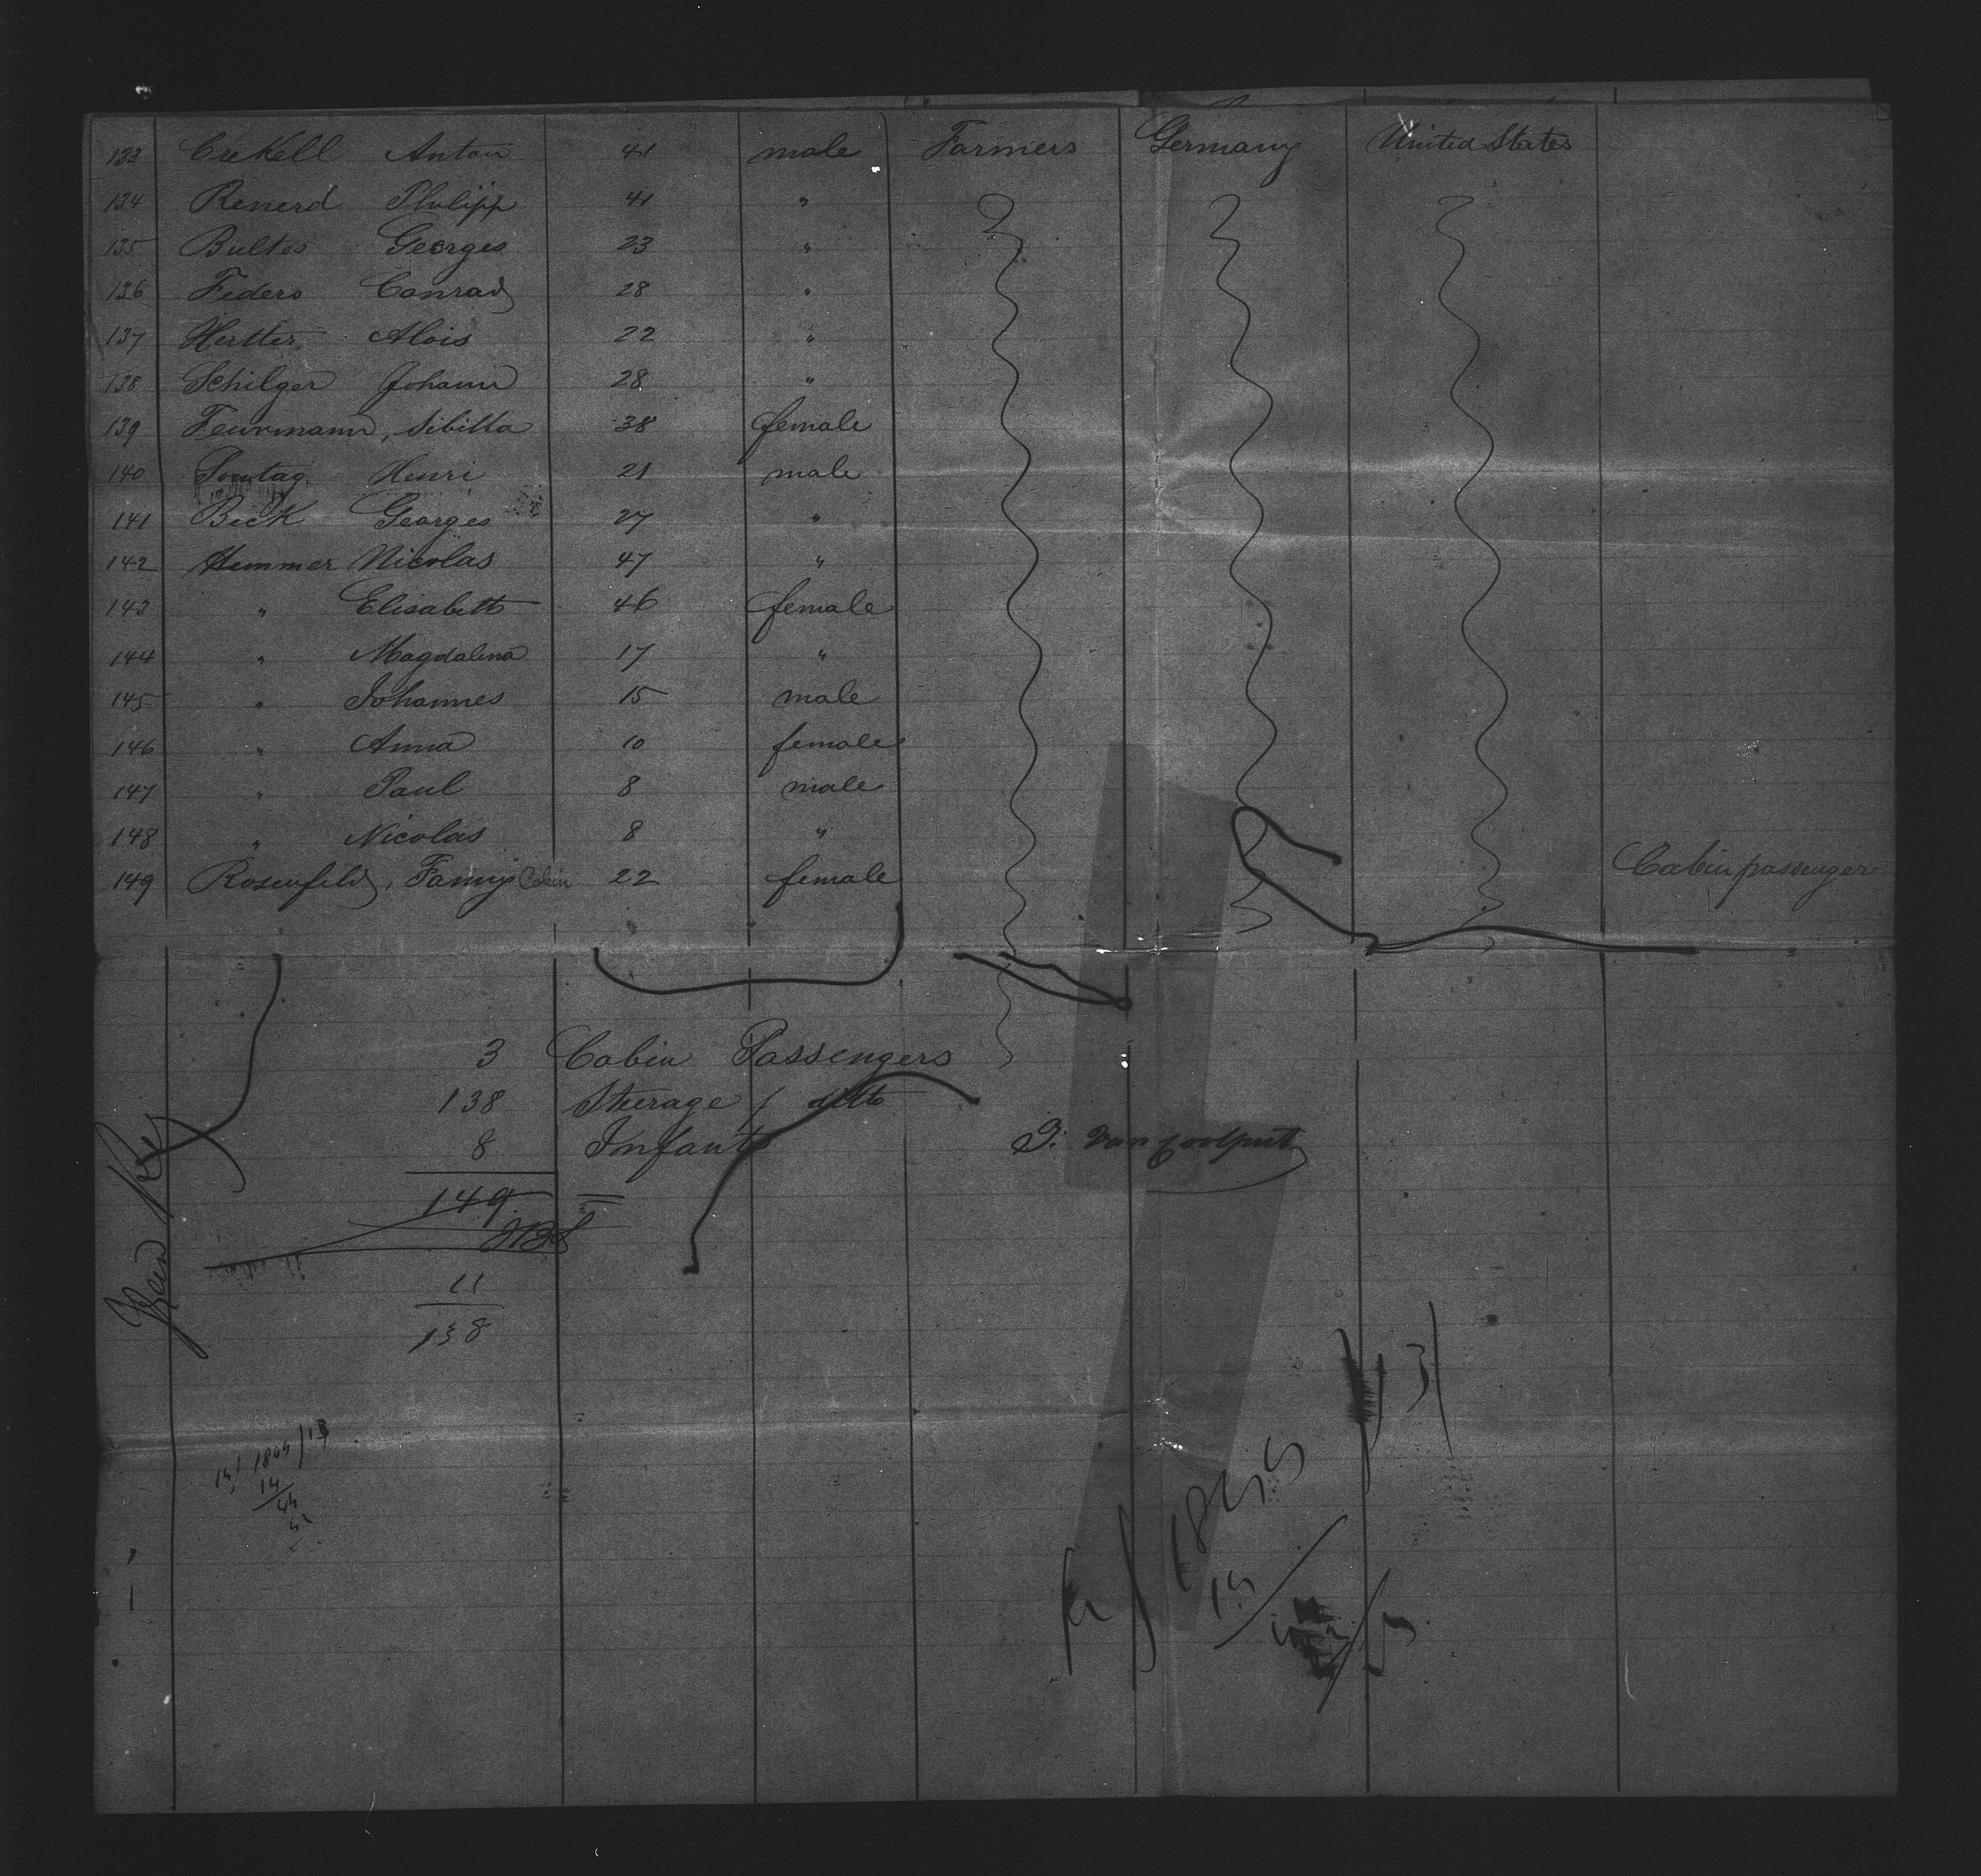 133 Crekell Anton 41 male Farmers Germany United States
134 Renerd Philipp 41 "
135 Bultes Georges 23 "
136 Feders Conrad 28 "
137 Hertter Alois 22 "
138 Schilger Johann 28 "
139 Feurmann, Sibilla 38 female
140 Sontag Henri 21 male
141 Beck Georges 27 "
142 Hemmer Nicolas 47 "
143 " Elisabeth 46 female
144 " Magdalena 17 "
145 " Johannes 15 male
146 " Anna 10 female
147 " Paul 8 male
148 " Nicolas 8 "
149 Rosenfeld, Fanny Cabin 22 female Cabin passenger
3 Cabin Passengers
138 Steerage / ditto
8 Infants
149
11
138